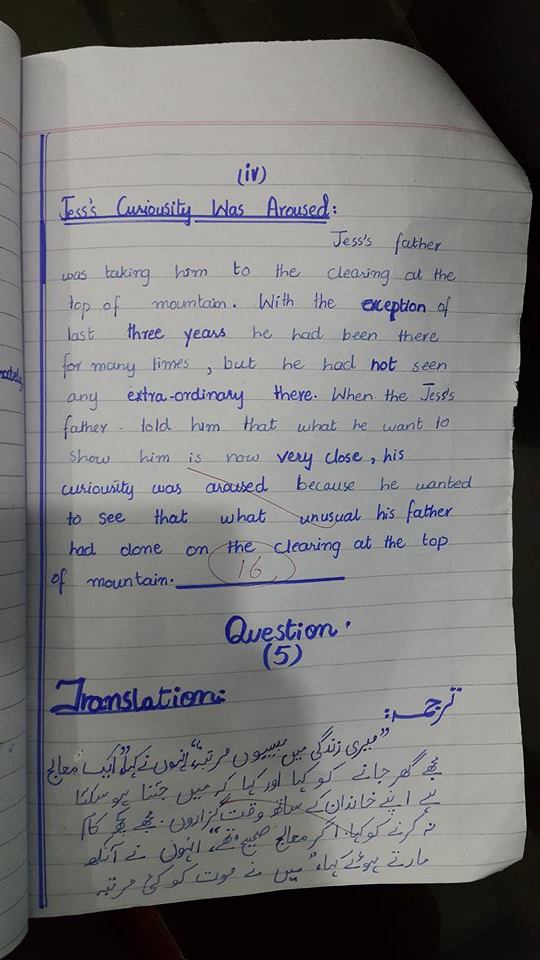 (iv)
Jess's Curiousity Was Aroused:
Jess's father
was taking him to the clearing at the
top of mountain. With the exception of
last three years he had been there
for many times, but he had not seen
any extra-ordinary there. When the Jess's
father told him that what he want to
show him is now very close, his
curiousity was aroused because he wanted
to see that what unusual his father
had done on the clearing at the top
of mountain.
16
Question.
(5)
Translation:
ترجمہ:
"میری زندگی میں بیسیوں مرتبہ" انہوں نے کہا "ایک معالج
مجھے گھر جانے کو کہا اور کہا کہ میں جتنا ہو سکتا
ہے اپنے خاندان کے ساتھ وقت گزاروں۔ مجھے کام
نہ کرنے کو کہا۔ اگر معالج صحیح تھے"، انہوں نے آنکھ
مارتے ہوئے کہا، "میں نے موت کو کئی مرتبہ